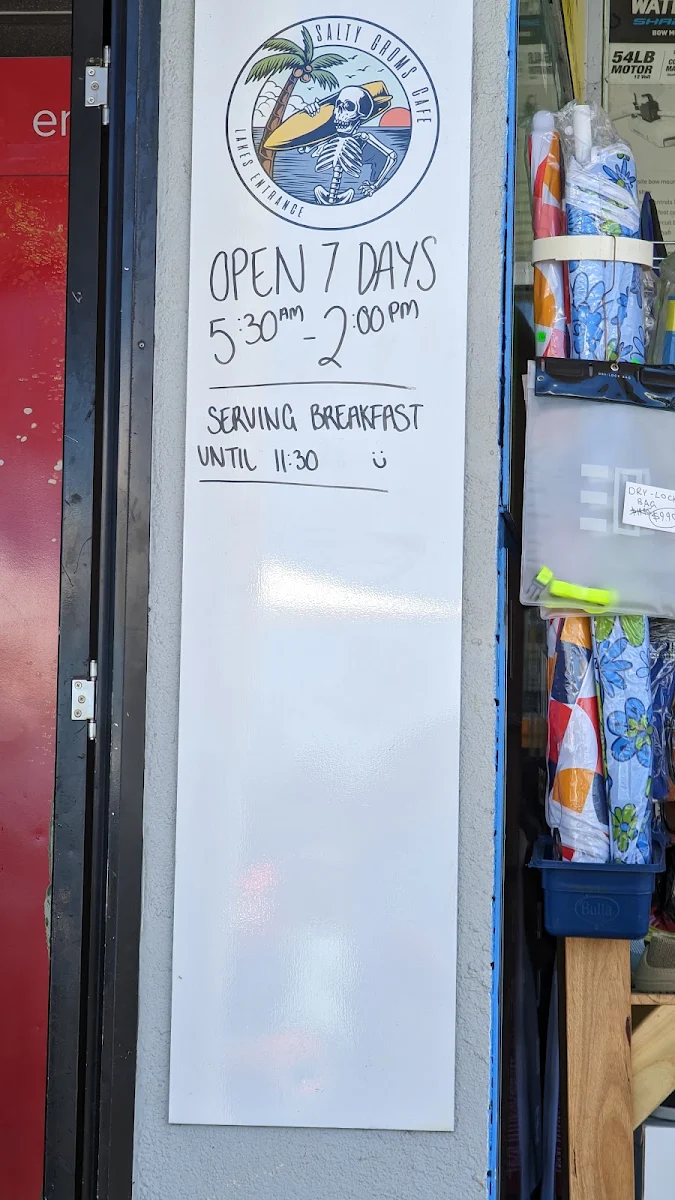 SALTY GROMS CAFE
LAKES ENTRANCE
OPEN 7 DAYS
5:30AM - 2:00PM
SERVING BREAKFAST
UNTIL 11:30 ü
er
WATT
SHA
BOW M
54LB
MOTOR
12 Volt
DRY-LOCK
BAG
Bulla